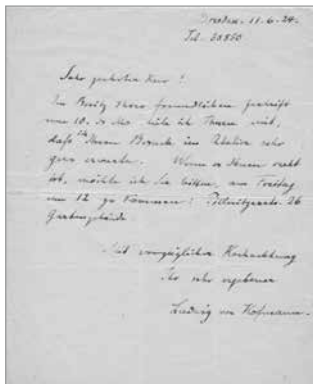 Dresden. 11.6.24.
Tel. 30850
Sehr geehrter Herr!
Im Besitz Ihrer freundlichen Zuschrift
vom 10. d. Mts. teile ich Ihnen mit,
dass ich Ihren Besuch im Atelier sehr
gern erwarte. Wenn es Ihnen recht
ist, möchte ich Sie bitten, am Freitag
um 12 zu kommen: Pillnitzerstr. 26
Gartengebäude.
Mit vorzüglicher Hochachtung
Ihr sehr ergebener
Ludwig von Hofmann.